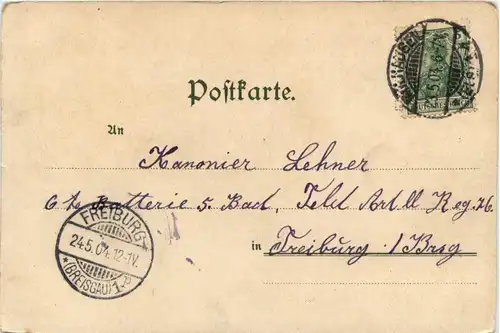 Postkarte.
An
Kanonier Lehner
6te Batterie 5. Bad. Feld Artll Reg. 76
in Freiburg i/Brsg
FREIBURG
24.5.04. 12-1V.
* (BREISGAU) 1 *